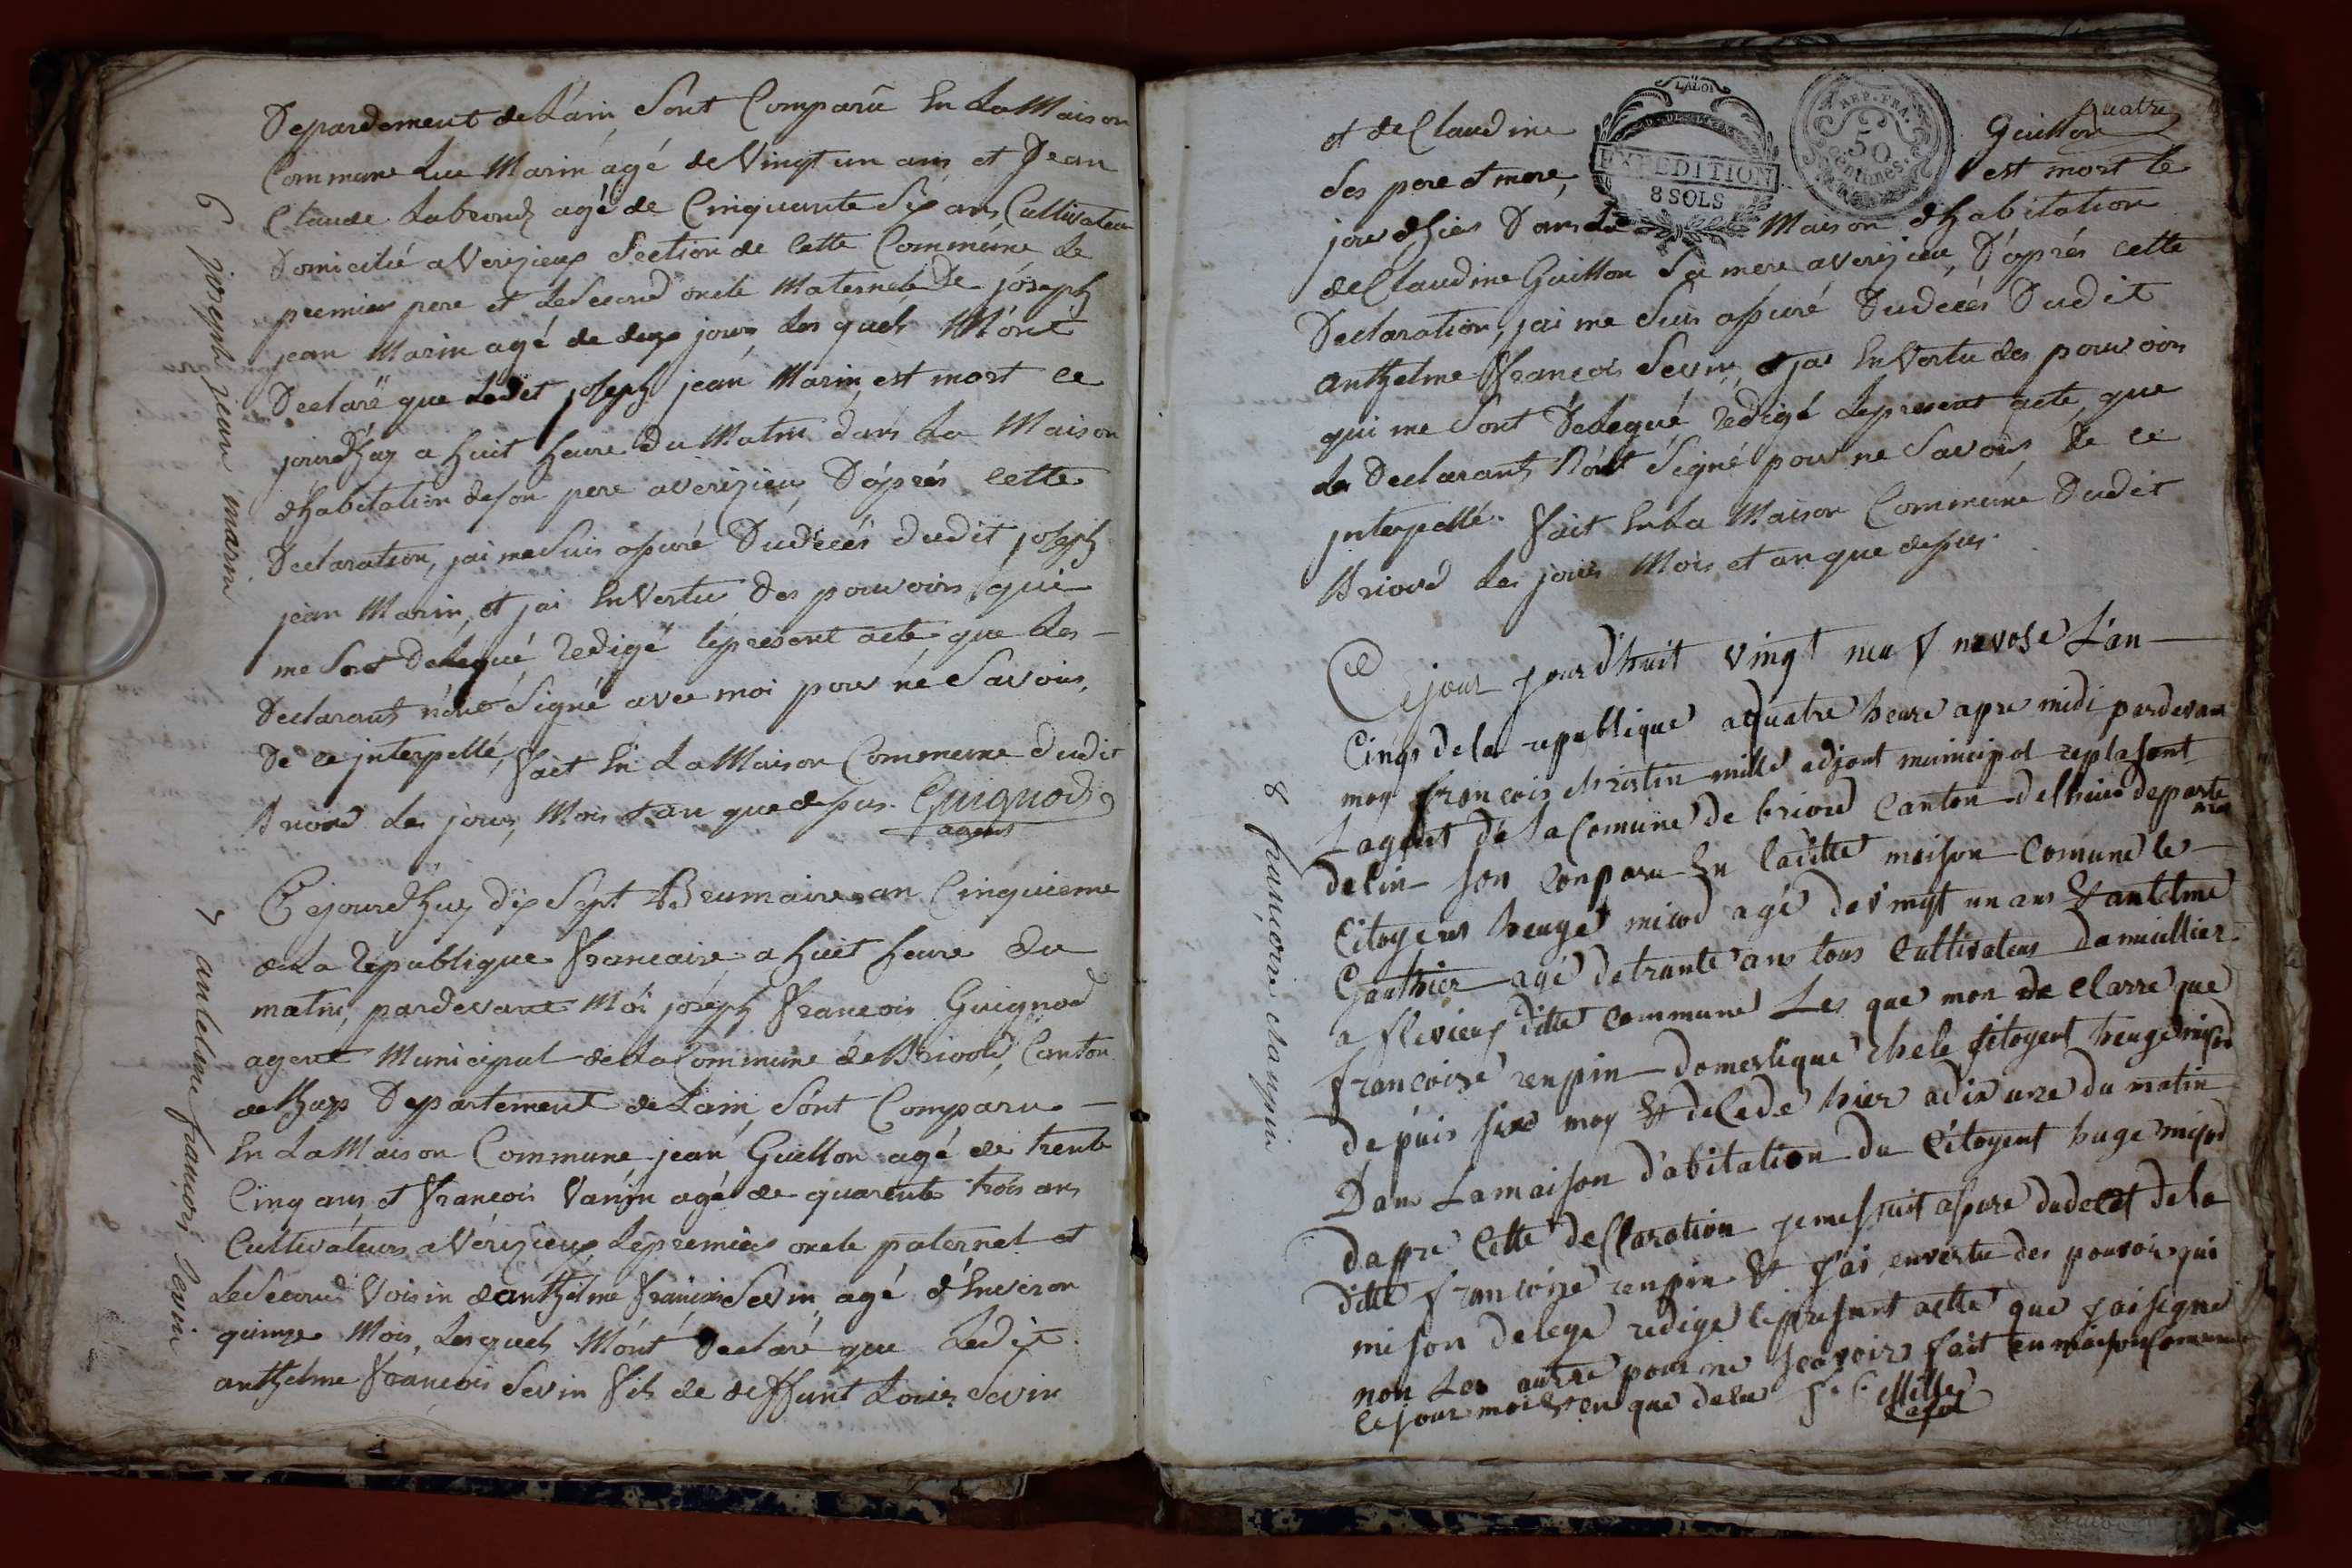 Depardement de Lain, Sont Comparû En La Maison
Commune Luc Marin agé de Vingt un ans et Jean
Claude Labrond agé de Cinquante Six ans Cultivateur
Domicilié a Verizieux Section de Cette Commune Le
premier pere et Le Second oncle Maternele De joseph
jean Marin agé de deux jours Les quels M'ont
Declaré que Ledit joseph jean Marin est mort ce
jourdhuy a huit heure du Matin dans La Maison
dhabitation de son pere a verizieu, D'aprés cette
Declaration, jai me Suis assuré Du décés dudit joseph
jean Marin, et jai En Vertu Des pouvoirs qui
me Sont Délegué redigé le present acte que Les
Declarants n'ont Signé avec moi pour né Savoir,
De ce interpellé, fait En La Maison Commune dudit
Briord Les jours, Mois et an que depus. Guignod
agent
6 joseph jean marin
Cejourdhuy dix Sept Brumaire an Cinquieme
de La republique francaise a huit heure du
matin, pardevant Moi joséph francois Guignod
agent Municipal de La Commune de Briord, Canton
de lhuys Departement de Lain, Sont Comparu
En La Maison Commune jean Guillon agé de trente
Cinq ans et francois Vanin agé de quarente trois ans
Cultivateurs a Vérizieux Le premier oncle paternel et
Le Second Voisin de anthelme francois Sevin agé d'Environ
quinze Mois, Lesquels M'ont Declaré que Ledit
anthelme francois Sevin fils de deffunt Louis Sevin
7 antelme françois sevin
quatre
LA LOI
EXPEDITION
8 SOLS
REP. FRA.
50
centimes
et de Claudine Guillon
Ses pere et mere, est mort le
jour dhier Dans La Maison dhabitation
de Claudine Guillon Sa mere a verizieu, D'aprés cette
Declaration, jai me Suis assuré Du décés Dudit
anthelme francois Sevin, et jai En Vertu des pouvoirs
qui me Sont Delegué redigé Le present acte que
Les Declarants N'ont Signé pour ne Savoir De ce
interpellé. fait En La Maison Commune Dudit
Briord Les jours Mois et an que depus.
Ce jour jourdhuit vingt neuf nivose L'an
Cinqs de la republique a quatre heure apre midi pardevan
moy francois christin mille adjont municipal replasent
Lagent de la Comune de briord Canton delhuis departe
men
delin son Conparu En laditte maison Comune le
Citoyens heuge micod agé de vingt un ans Et antelme
Gauthier agé de trante ans tous Cultivateurs damicillier
a flevieux ditte commune Les que mon de Clarre que
francoise renpin domestique chele sitoyent heuge misod
depuis six moy Et decede hier a dix ure du matin
Dans La maison d'abitation du Citoyent huge misod
dapre Cette declaration je me suit assure du deces de la
ditte francoise renpin Et j'ai en vertu des pouvoir qui
mi son delege redige le present actte que j'ai signe
non Les autre pour ne scavoir fait en maison Comune
le jour moi Et en que desu f. C. Mille
8 françoise champin